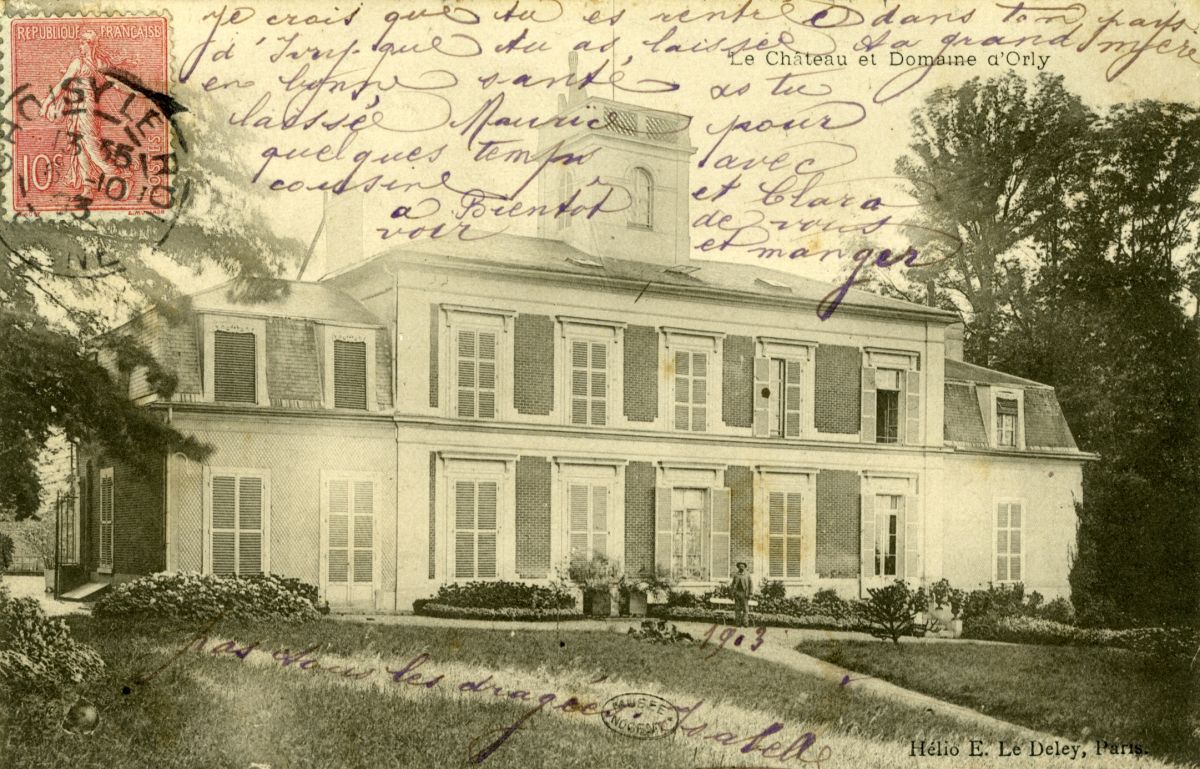 RÉPUBLIQUE FRANÇAISE
10c
POSTES
CHOISY-LE-R
SEINE
Le Château et Domaine d'Orly
Je crois que tu es rentrée dans ton pays
d'Ivry que tu as laissée ta grand mère
en bonne santé as tu
laissé Maurice pour
quelques temps avec
cousine et Clara
a Bientot de vous
voir et manger
1903
pas tous les dragées Isabelle
MUSÉE
Hélio E. Le Deley, Paris.